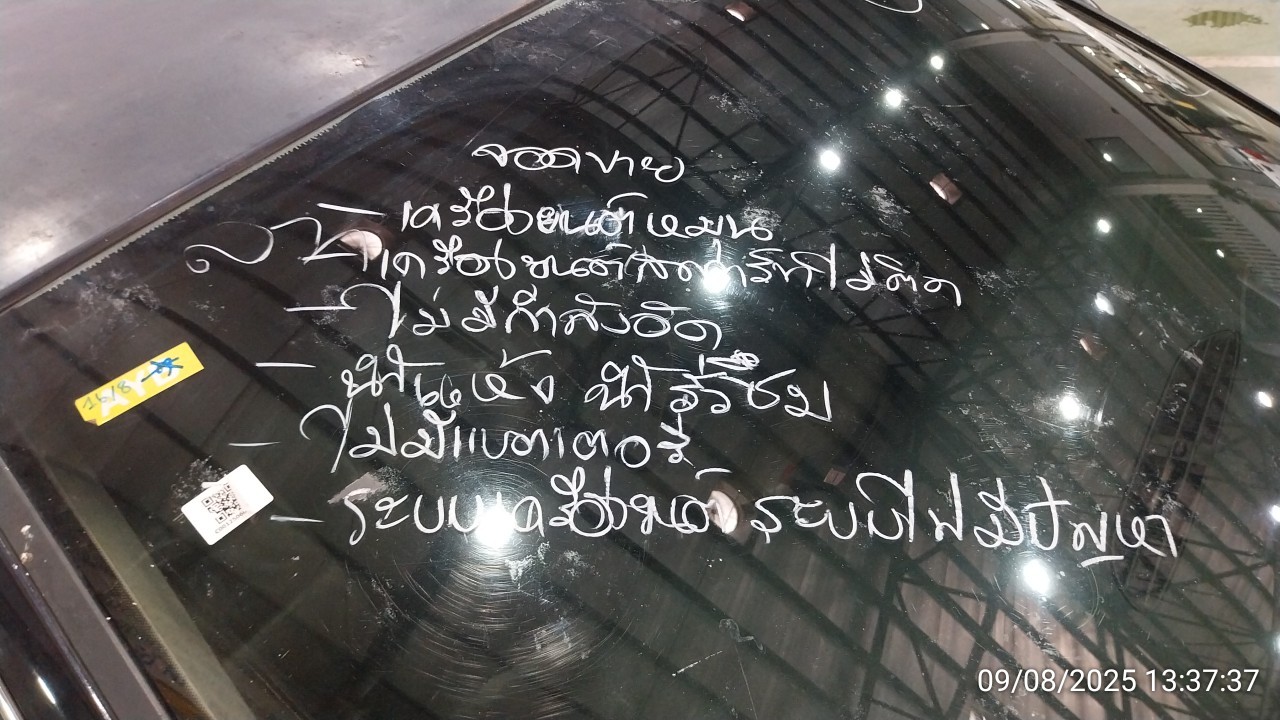 จอดขาย
- เครื่องยนต์หมุน
เครื่องยนต์สตาร์ทไม่ติด
- ไม่มีกำลังอัด
- น้ำแห้ง น้ำรั่วซึม
- ไม่มีแบตเตอรี่
- ระบบเครื่องยนต์ ระบบไฟมีปัญหา
16/8
09/08/2025 13:37:37